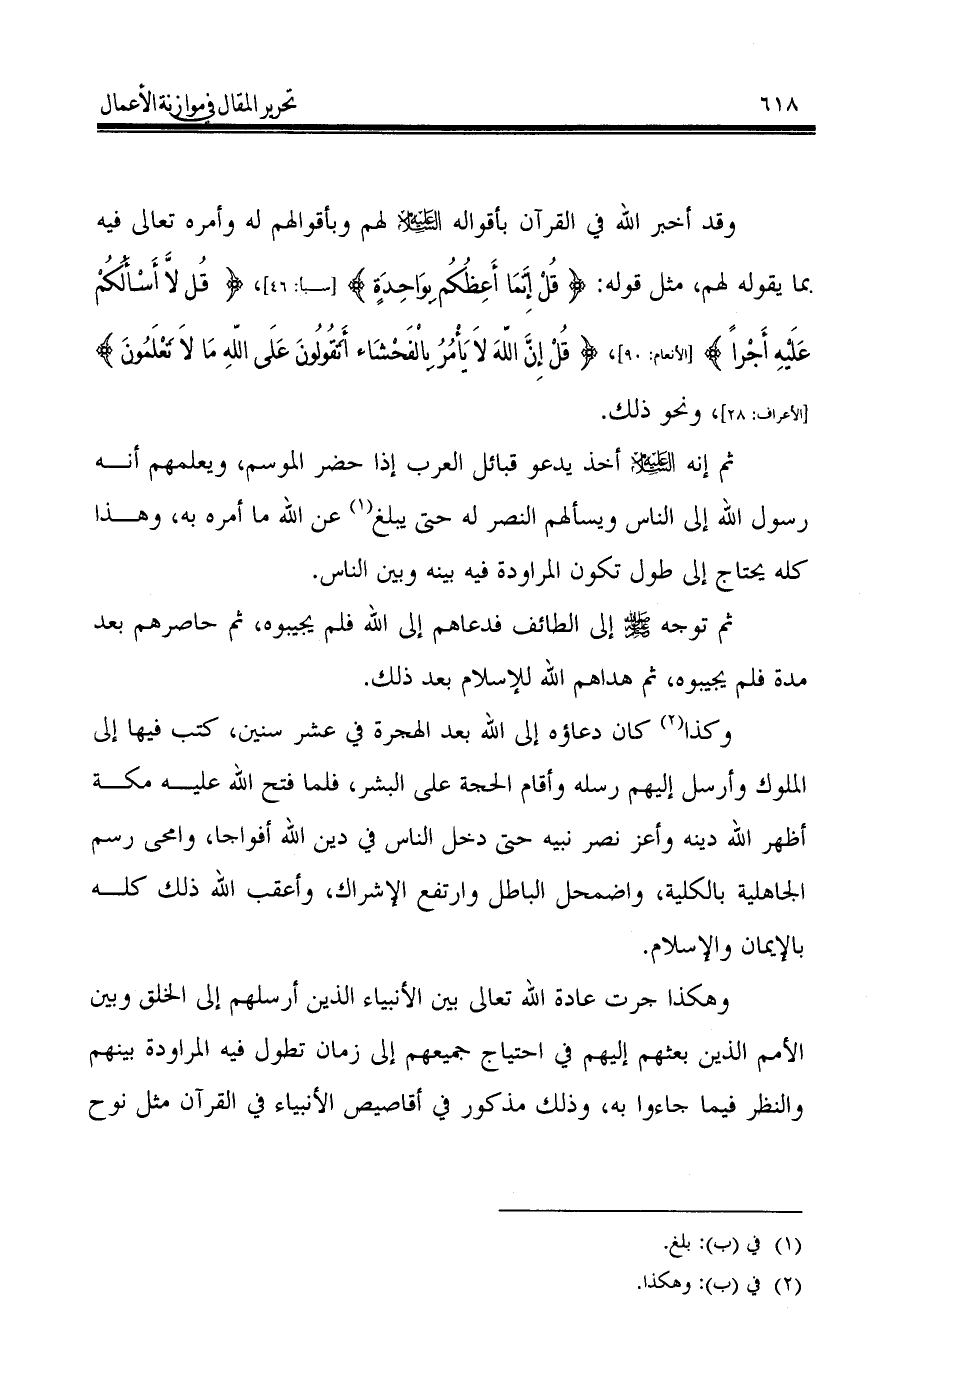 ٦١٨ تحرير المقال في موازنة الأعمال
وقد أخبر الله في القرآن بأقواله عليه السلام لهم وبأقوالهم له وأمره تعالى فيه
بما يقوله لهم، مثل قوله: ﴿ قُلْ إِنَّمَا أَعِظُكُم بِوَاحِدَةٍ ﴾ [سبا: ٤٦]، ﴿ قُل لاَّ أَسْأَلُكُمْ
عَلَيْهِ أَجْراً ﴾ [الأنعام: ٩٠]، ﴿ قُلْ إِنَّ اللّهَ لاَ يَأْمُرُ بِالْفَحْشَاء أَتَقُولُونَ عَلَى اللّهِ مَا لاَ تَعْلَمُونَ ﴾
[الأعراف: ٢٨]، ونحو ذلك.
ثم إنه عليه السلام أخذ يدعو قبائل العرب إذا حضر الموسم، ويعلمهم أنـــه
رسول الله إلى الناس ويسألهم النصر له حتى يبلغ(١) عن الله ما أمره به، وهـــذا
كله يحتاج إلى طول تكون المراودة فيه بينه وبين الناس.
ثم توجه ﷺ إلى الطائف فدعاهم إلى الله فلم يجيبوه، ثم حاصرهم بعد
مدة فلم يجيبوه، ثم هداهم الله للإسلام بعد ذلك.
وكذا(٢) كان دعاؤه إلى الله بعد الهجرة في عشر سنين، كتب فيها إلى
الملوك وأرسل إليهم رسله وأقام الحجة على البشر، فلما فتح الله عليـــه مكـــة
أظهر الله دينه وأعز نصر نبيه حتى دخل الناس في دين الله أفواجا، وامحى رسم
الجاهلية بالكلية، واضمحل الباطل وارتفع الإشراك، وأعقب الله ذلك كلـــه
بالإيمان والإسلام.
وهكذا جرت عادة الله تعالى بين الأنبياء الذين أرسلهم إلى الخلق وبين
الأمم الذين بعثهم إليهم في احتياج جميعهم إلى زمان تطول فيه المراودة بينهم
والنظر فيما جاءوا به، وذلك مذكور في أقاصيص الأنبياء في القرآن مثل نوح
(١) في (ب): بلغ.
(٢) في (ب): وهكذا.